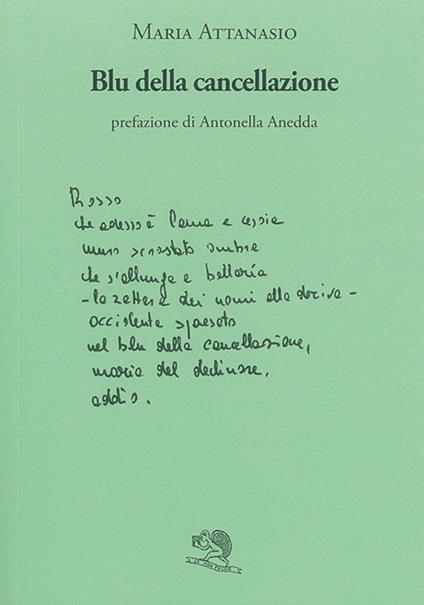 MARIA ATTANASIO
Blu della cancellazione
prefazione di Antonella Anedda
Rosso
che adesso è lama e
muro scrostato ombre
che s'allunga e
- la zattera dei nomi alla deriva -
occidente spaesato
nel blu della cancellazione,
maria del declinare,
addio.